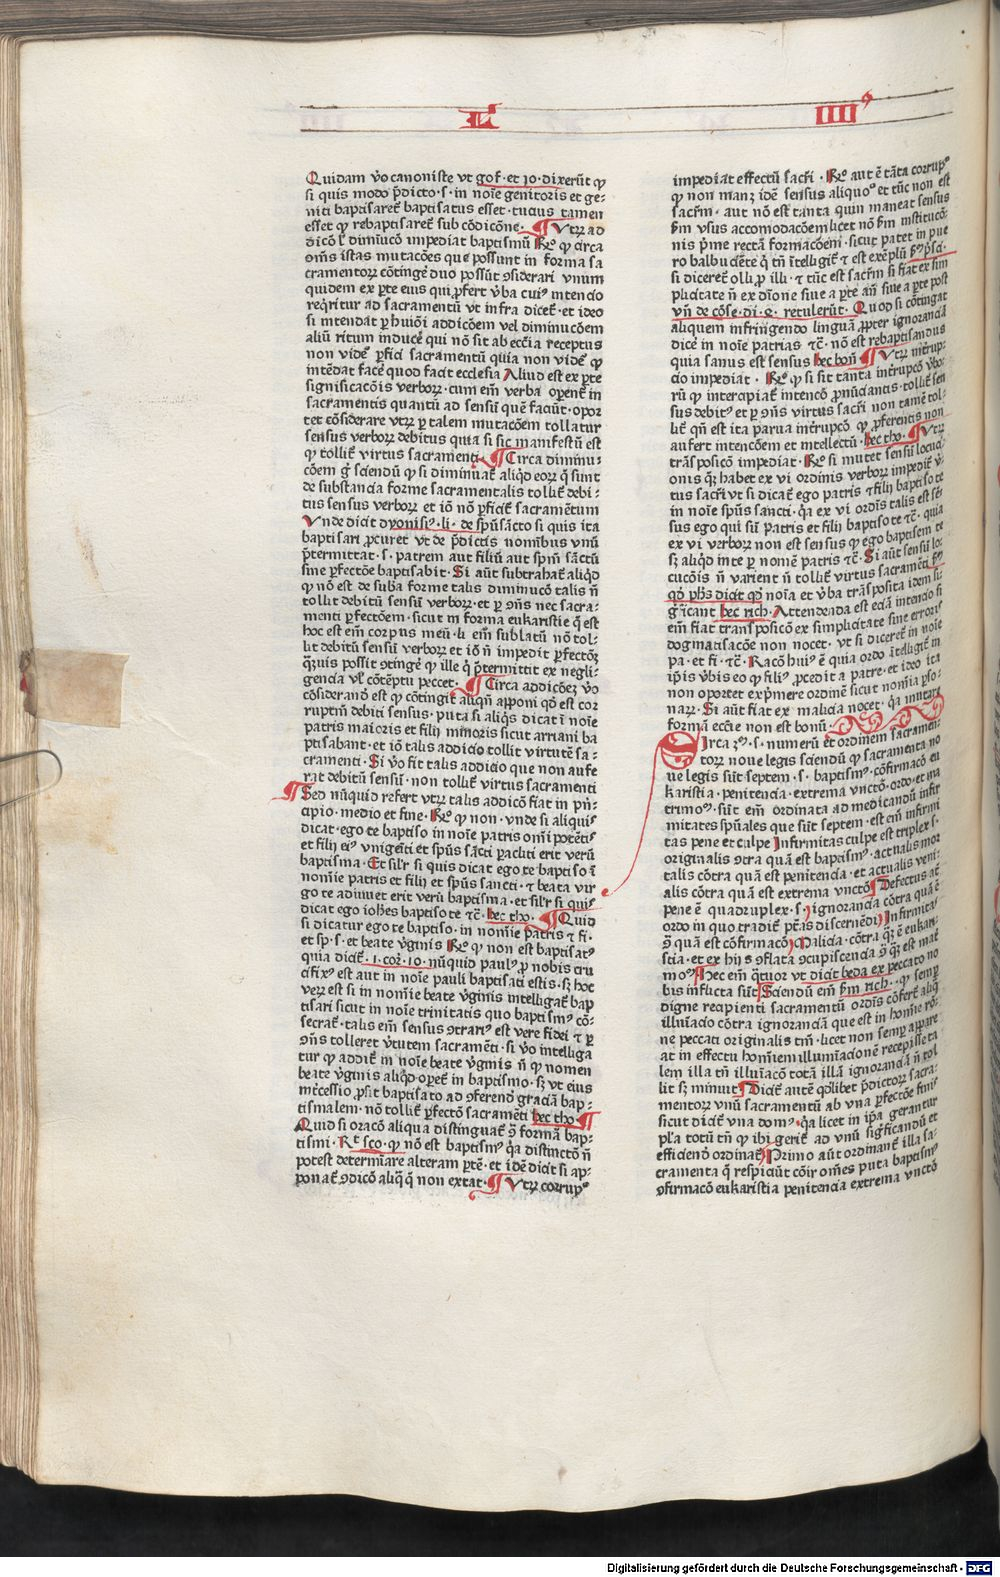 L IIII⁹
Quidam v̄o canoniste vt gof· et io· dixerūt ꝙ
si quis modo p̄dicto·s· in noīe genitoris et ge⸗
niti baptisaret̄ baptisatus esset· tucius tamen
esset ꝙ rebaptisaret̄ sub cōdicōne· ¶ Vtꝝ ad
dicō ł diminucō impediat baptismū R̄o ꝙ circa
om̄s istas mutacōes que possunt in forma sa
cramentoꝝ cōtinge᷑ duo possūt ꝯsiderari vnum
quidem ex ꝑte eius qui ꝓfert v̄ba cui⁹ intencio
req̄ritur ad sacramentū vt infra dicet᷑· et ideo
si intendat ꝑ huiōi addicōem vel diminucōem
aliū ritum induce᷑ qui nō sit ab ecc̄ia receptus
non videt᷑ ꝑfici sacramentū quia non videt᷑ ꝙ
intēdat face᷑ quod facit ecclesia Aliud est ex ꝑte
significacōis verboꝝ· cum em̄ verba opent᷑ in
sacramentis quantū ad sensū quē faciūt· opor
tet cōsiderare vtꝝ ꝑ talem mutacōem tollatur
sensus verboꝝ debitus quia si sic manifestū est
ꝙ tollit᷑ virtus sacramenti· ¶ Circa diminu⸗
cōem g̊ sciendū ꝙ si diminuat᷑ aliq̄d eoꝝ q̄ sunt
de substancia forme sacramentalis tollit᷑ debi⸗
tus sensus verboꝝ et iō nō ꝑficit᷑ sacramētum
Vnde dicit dyonisi⁹·li· de spūsācto si quis ita
baptisari ꝓcuret vt de p̄dictis nomībus vnū
p̄termittat·s· patrem aut filiū aut spm̄ sāctū
sine ꝑfectōe baptisabit· Si aūt subtrahat᷑ aliq̄d
ꝙ nō est de sub̄a forme talis diminucō talis n̄
tollit debitū sensū verboꝝ· et ꝑ ꝯn̄s nec sacra⸗
menti ꝑfectōem· sicut in forma eukaristie q̄ est
hoc est em̄ corpus meū· li em̄ sublatū nō tol⸗
lit debitū sensū verboꝝ et iō n̄ impedit ꝑfectōꝫ
q̄ꝫuis possit ꝯtinge᷑ ꝙ ille q̄ p̄termittit ex negli⸗
gencia vł cōtēptu peccet· ¶ Circa addicōeꝫ v̄o
cōsiderand̄ est ꝙ cōtingit aliqn̄ apponi qd̄ est cor
ruptiū debiti sensus· puta si aliq̄s dicat ī noīe
patris maioris et filij minoris sicut arriani ba
ptisabant· et iō talis addicio tollit virtutē sa⸗
cramenti· Si v̄o sit talis addicio que non aufe
rat debitū sensū· non tollit᷑ virtus sacramenti
¶ Sed nūquid refert vtꝝ talis addicō fiat in pn̄⸗
cipio· medio et fine· R̄o ꝙ non· vnde si aliquis
dicat· ego te baptiso in noīe patris om̄ipotētis
et filij ei⁹ vnigeīti et spūs sācti ꝑacliti erit verū
baptisma· Et silr̄ si quis dicat ego te baptiso ī
nomīe patris et filij et spūs sancti· ⁊ beata vir
go te adiuuet erit verū baptisma· et silr̄ si quis
dicat ego ioh̄es baptiso te ⁊c̄· hec tho· ¶ Quid
si dicatur ego te baptiso· in nomīe patris ⁊ fi·
et sp·s· et beate v̄ginis R̄o ꝙ non est baptisat⁹
quia dicit᷑·i·cor·io· nūquid paul⁹ ꝓ nobis cru
cifix⁹ est aut in noīe pauli baptisati estis·sꝫ hoc
veꝝ est si in nomīe beate v̄ginis intelligat᷑ bap
tisari sicut in noīe trinitatis quo baptism⁹ cō⸗
secrat᷑· talis em̄ sensus ꝯtrari⁹ est vere fidei ⁊ ꝑ
ꝯn̄s tolleret v̄tutem sacramēti· si v̄o intelliga
tur ꝙ addit᷑ in noīe beate v̄ginis n̄ ꝙ nomen
beate v̄ginis aliq̄d opet᷑ in baptismo· sꝫ vt eius
int̄cessio ꝓsit baptisato ad ꝯferend̄ graciā bap⸗
tismalem· nō tollit᷑ ꝑfectō sacramēti hec tho· ¶
Quid si oracō aliqua distinguat᷑ ꝯ formā bap⸗
tismi· R̄t sco· ꝙ nō est baptism⁹ q̄a distinctō n̄
potest determīare alteram ptē· et idē dicit si ap⸗
ponat᷑ ꝯdicō aliq̄ q̄ non extat· ¶ Vtꝝ corrup⁰
impediat effectū sacri· R̄o aut ē tāta corrup⁰
ꝙ non manꝫ idē sensus aliquo⁰ et tūc non est
sacrm̄· aut nō est tanta quin maneat sensus
ẜm vsus accomodacōem licet nō ẜm institucō⸗
nis p̄me rectā formacōem· sicut patet in pue
ro balbuciēte q̄ tn̄ ītelligit᷑ ⁊ est exēplū
si diceret᷑ olli ꝓ illi· ⁊ tūc est sacrm̄ si fiat ex sim
plicitate n̄ ex dīone siue a ꝑte an̄ siue a ꝑte post
vn̄ de cōse·di·e· retulerūt· Quod si cōtingat
aliquem infringendo linguā ꝓpter ignoranciā
dice᷑ in noīe patrias ⁊c̄· nō est rebaptisandus
quia sanus est sensus hec bon̄ ¶ Vtꝝ int̄rup⸗
cio impediat· R̄o ꝙ si sit tanta int̄rupcō v̄bo⸗
rū ꝙ intercipiat᷑ intencō ꝓnūciantis· tollit᷑ sen
sus debit⁹ et ꝑ ꝯn̄s virtus sacri non tamē tol⸗
lit᷑ qn̄ est ita parua int̄rupcō ꝙ ꝓferentis non
aufert intencōem et intellectū· hec tho· ¶ Vtꝝ
trāsposicō impediat· R̄o si mutet sensū locuci
onis q̄ꝫ habet ex vi ordinis verboꝝ impedit᷑ v̄
tus sacri vt si dicat᷑ ego patris ⁊ filij baptiso te
in noīe spūs sancti· q̄a ex vi ordīs talis est sē⸗
sus ego qui sū patris et filij baptiso te ⁊c̄· quia
ex vi verboꝝ non est sensus ꝙ ego baptisem te
sꝫ aliq̄d in te ꝑ nomē patris ⁊c̄· Si aūt sensū lo⸗
cucōis n̄ varient᷑ n̄ tollit᷑ virtus sacramēti
qd̄ ph̄s dicit qd̄ noīa et v̄ba trāsposita idem si⸗
g̊ificant hec rich· Attendenda est eciā intencio si
em̄ fiat transposicō ex simplicitate sine erroris
dogmatisacōe non nocet· vt si diceret᷑ in noīe
pa· et fi· ⁊c̄· Racō hui⁹ ē quia ordo ītelligit᷑ in
ip̄is v̄bis eo ꝙ fili⁹ ꝓcedit a patre· et ideo ita
non oportet exp̄mere ordinē sicut nomīa ꝑso⸗
naꝝ· Si aūt fiat ex malicia nocet· q̄a mutare
formā ecc̄ie non est bonū·
Circa ·s· numerū et ordinem sacramen⸗
toꝝ noue legis sciendū ꝙ sacramenta no
ue legis sūt septem·s· baptism⁹· cōfirmacō eu
karistia· penitencia· extrema vnctō· ordo· et ma
trimo⁰· sūt em̄ ordinata ad medicandū infir
mitates spūales que sūt septem· est em̄ infirmi
tas pene et culpe Infirmitas culpe est triplex·s·
originalis ꝯtra quā est baptism⁹· actualis mor
talis cōtra quā est penitencia· et actualis veni⸗
alis cōtra quā est extrema vnctō ¶ Defectus aūt
pene ē quadruplex·s· ignorancia cōtra quā ē
ordo in quo tradit᷑ ptās discernēdi Infirmitas
ꝯ quā est cōfirmacō Malicia· cōtra q̄ꝫ ē eukari⸗
stia· et ex hijs ꝯflata ꝯcupiscencia ꝯ q̄ꝫ est mat᷑
mo⁰ ¶ Hec em̄ q̄tuor vt dicit beda ex peccato no
bis inflicta sūt ¶ Sciendū em̄ ẜm rich·· ꝙ semꝑ
digne recipienti sacramentū ordīs cōfert᷑ aliq̄
illuīacio cōtra ignoranciā que est in hoīe rō⸗
ne peccati originalis tn̄· licet non semꝑ appare
at in effectu hoīem illumīacionē recepisse ta
lem illa tn̄ illuīacō totā illā ignoranciā n̄ tol
lit sꝫ minuit ¶ Dicit᷑ autē qd̄libet p̄dictoꝝ sacra⸗
mentoꝝ vnū sacramentū ab vna ꝑfectōe finis
sicut dicit᷑ vna dom⁹· q̄a licet in ip̄a gerantur
pl̄a totū tn̄ ꝙ ibi gerit᷑ ad vnū sig̊ficandū et
efficiend̄ ordinat᷑ Primo aūt ordinant᷑ illa sa⸗
cramenta q̄ respiciūt cōit̄ om̄es puta baptism⁹
ꝯfirmacō eukaristia penitencia extrema vnctō
Digitalisierung gefördert durch die Deutsche Forschungsgemeinschaft - DFG